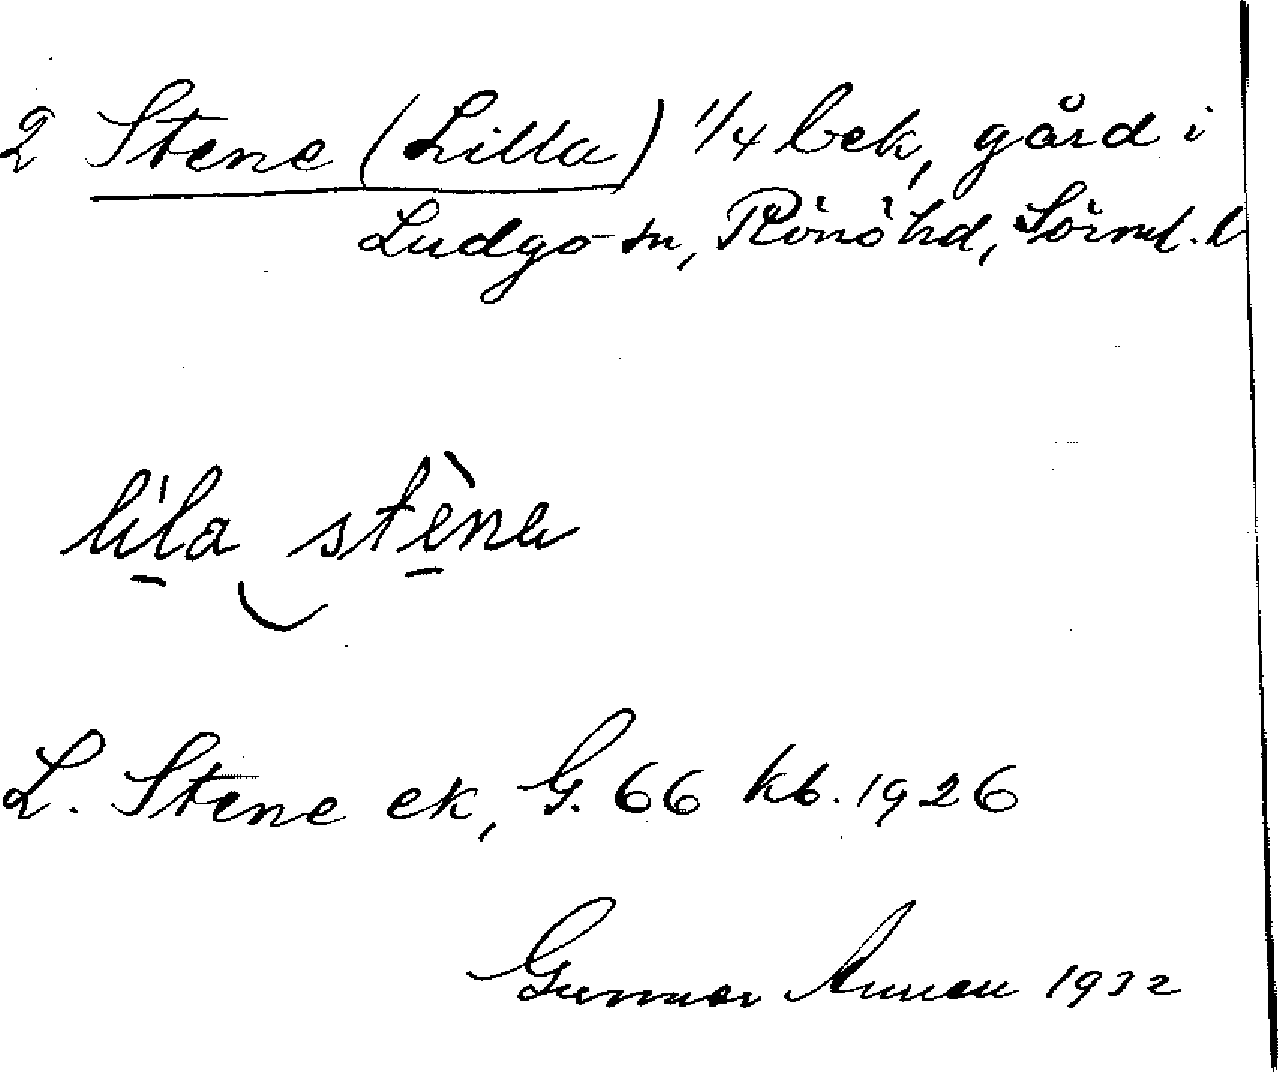 2 Stene (Lilla) 1/4 bek, gård i
Ludgo sn, Rönö hd, Sörml. l
lila stène
L. Stene ek, G. 66 kb. 1926
Gunnar 1932